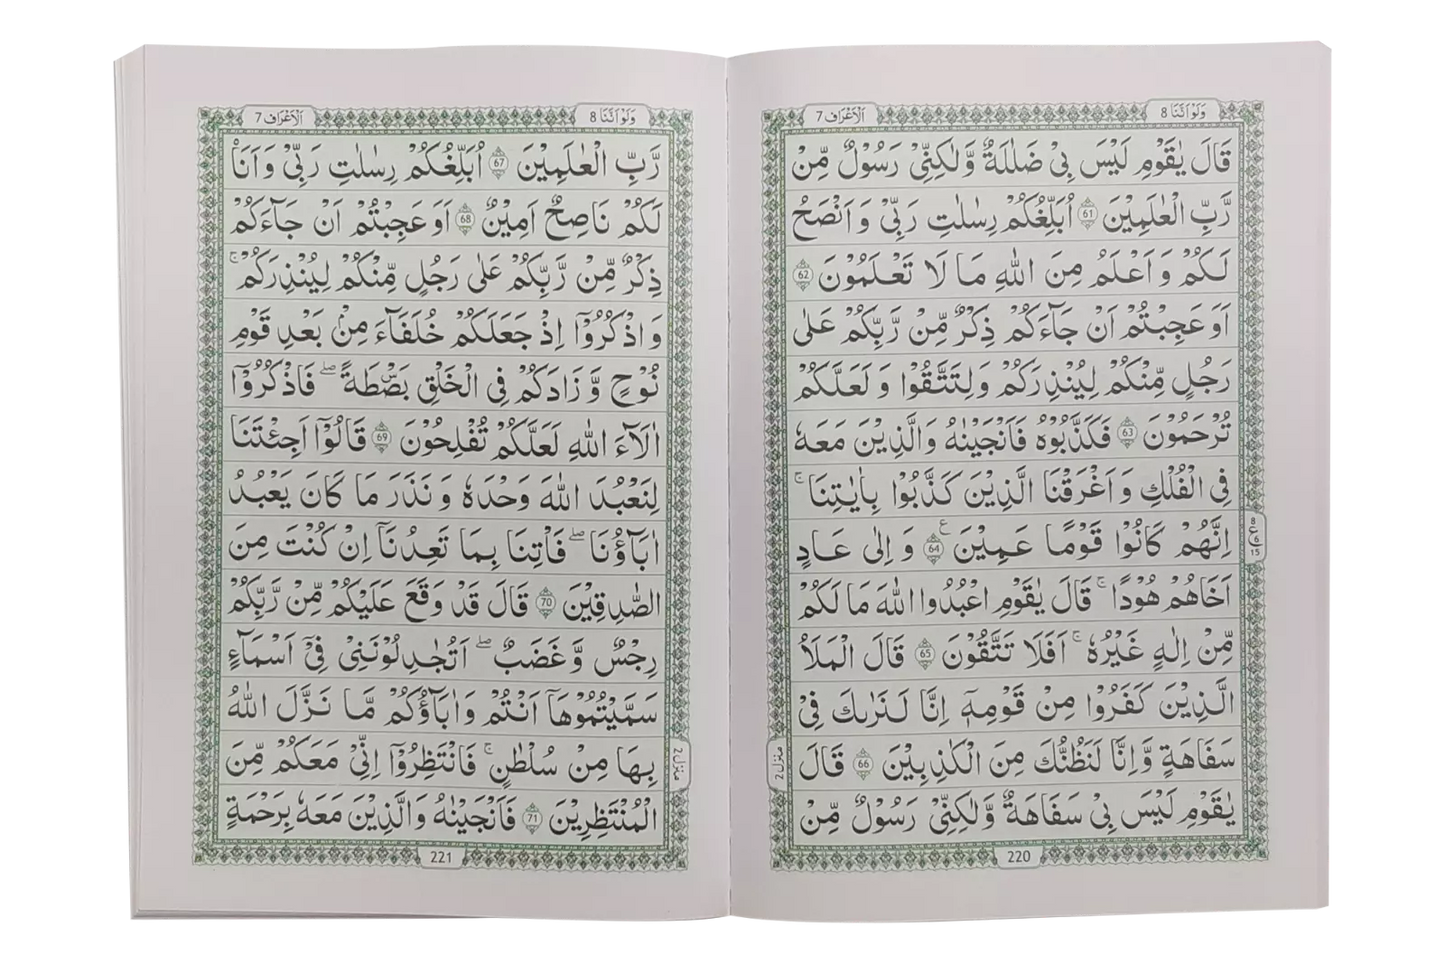 وَلَوْ اَنَّنَا 8
الْاَعْرَاف 7
قَالَ يٰقَوْمِ لَيْسَ بِيْ ضَلٰلَةٌ وَّلٰكِنِّيْ رَسُوْلٌ مِّنْ
رَّبِّ الْعٰلَمِيْنَ 61 اُبَلِّغُكُمْ رِسٰلٰتِ رَبِّيْ وَاَنْصَحُ
لَكُمْ وَاَعْلَمُ مِنَ اللّٰهِ مَا لَا تَعْلَمُوْنَ 62
اَوَعَجِبْتُمْ اَنْ جَآءَكُمْ ذِكْرٌ مِّنْ رَّبِّكُمْ عَلٰى
رَجُلٍ مِّنْكُمْ لِيُنْذِرَكُمْ وَلِتَتَّقُوْا وَلَعَلَّكُمْ
تُرْحَمُوْنَ 63 فَكَذَّبُوْهُ فَاَنْجَيْنٰهُ وَالَّذِيْنَ مَعَهٗ
فِي الْفُلْكِ وَاَغْرَقْنَا الَّذِيْنَ كَذَّبُوْا بِاٰيٰتِنَا ۚ
اِنَّهُمْ كَانُوْا قَوْمًا عَمِيْنَ 64 ع وَاِلٰى عَادٍ
8 ع 6 15
اَخَاهُمْ هُوْدًا ۚ قَالَ يٰقَوْمِ اعْبُدُوا اللّٰهَ مَا لَكُمْ
مِّنْ اِلٰهٍ غَيْرُهٗ ۚ اَفَلَا تَتَّقُوْنَ 65 قَالَ الْمَلَاُ
الَّذِيْنَ كَفَرُوْا مِنْ قَوْمِهٖٓ اِنَّا لَنَرٰىكَ فِيْ
سَفَاهَةٍ وَّاِنَّا لَنَظُنُّكَ مِنَ الْكٰذِبِيْنَ 66 قَالَ
منزل 2
يٰقَوْمِ لَيْسَ بِيْ سَفَاهَةٌ وَّلٰكِنِّيْ رَسُوْلٌ مِّنْ
220
وَلَوْ اَنَّنَا 8
الْاَعْرَاف 7
رَّبِّ الْعٰلَمِيْنَ 67 اُبَلِّغُكُمْ رِسٰلٰتِ رَبِّيْ وَاَنَا
لَكُمْ نَاصِحٌ اَمِيْنٌ 68 اَوَعَجِبْتُمْ اَنْ جَآءَكُمْ
ذِكْرٌ مِّنْ رَّبِّكُمْ عَلٰى رَجُلٍ مِّنْكُمْ لِيُنْذِرَكُمْ ۚ
وَاذْكُرُوْٓا اِذْ جَعَلَكُمْ خُلَفَآءَ مِنْۢ بَعْدِ قَوْمِ
نُوْحٍ وَّزَادَكُمْ فِي الْخَلْقِ بَصْۜطَةً ۖ فَاذْكُرُوْٓا
اٰلَآءَ اللّٰهِ لَعَلَّكُمْ تُفْلِحُوْنَ 69 قَالُوْٓا اَجِئْتَنَا
لِنَعْبُدَ اللّٰهَ وَحْدَهٗ وَنَذَرَ مَا كَانَ يَعْبُدُ
اٰبَآؤُنَا ۖ فَاْتِنَا بِمَا تَعِدُنَآ اِنْ كُنْتَ مِنَ
الصّٰدِقِيْنَ 70 قَالَ قَدْ وَقَعَ عَلَيْكُمْ مِّنْ رَّبِّكُمْ
رِجْسٌ وَّغَضَبٌ ۖ اَتُجَادِلُوْنَنِيْ فِيْٓ اَسْمَآءٍ
سَمَّيْتُمُوْهَآ اَنْتُمْ وَاٰبَآؤُكُمْ مَّا نَزَّلَ اللّٰهُ
بِهَا مِنْ سُلْطٰنٍ ۚ فَانْتَظِرُوْٓا اِنِّيْ مَعَكُمْ مِّنَ
منزل 2
الْمُنْتَظِرِيْنَ 71 فَاَنْجَيْنٰهُ وَالَّذِيْنَ مَعَهٗ بِرَحْمَةٍ
221